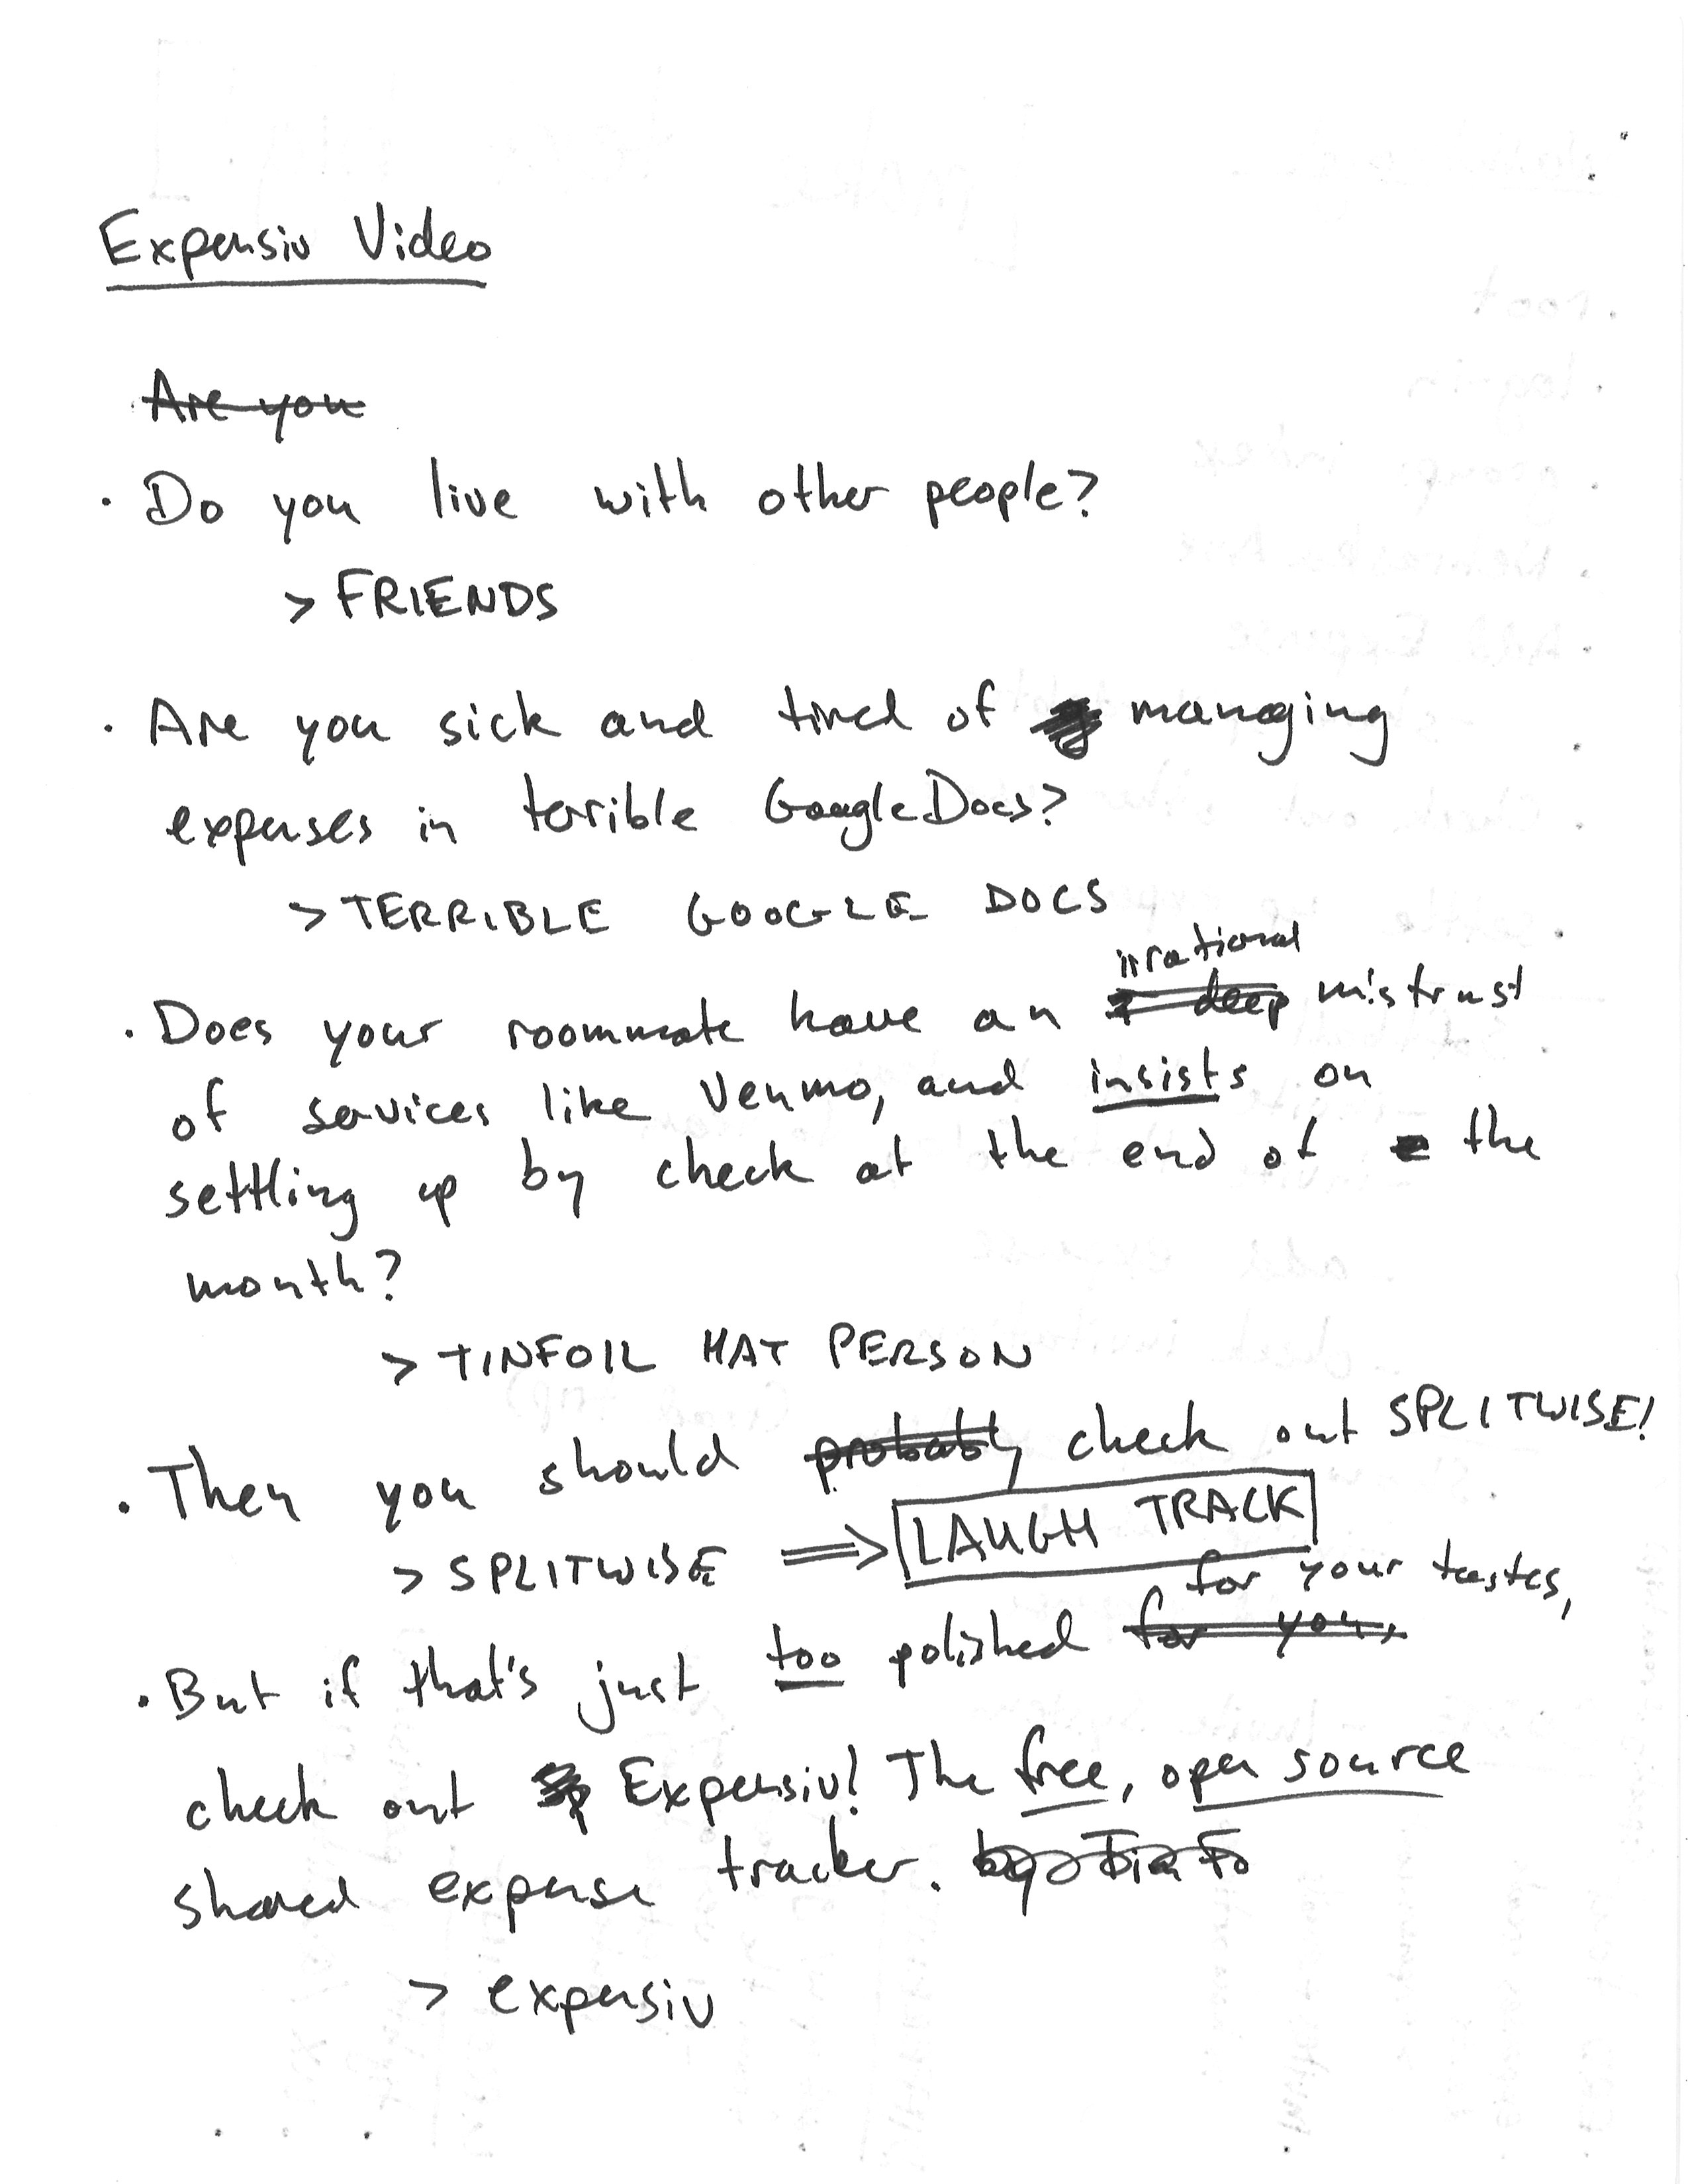 Expensiv Video
Are you
· Do you live with other people?
> FRIENDS
· Are you sick and tired of managing
expenses in terrible Google Docs?
> TERRIBLE GOOGLE DOCS
irrational
· Does your roommate have an deep mistrust
of services like Venmo, and insists on
settling up by check at the end of the
month?
> TINFOIL HAT PERSON
· Then you should probably check out SPLITWISE!
> SPLITWISE ⇒ LAUGH TRACK
for your tastes,
· But if that's just too polished for you,
check out Expensiv! The free, open source
shared expense tracker. by
> expensiv